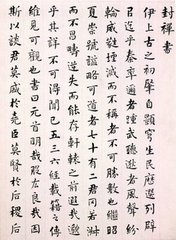 封禪書
伊上古之初肇自顥穹生民歷選列辟
以迄乎秦率邇者踵武聽逖者風聲紛
輪威蕤堙滅而不稱者不可勝數也繼昭
夏崇號諡略可道者七十有二君罔若淑
而不昌疇逆失而能存軒轅之前遐哉邈
乎其詳不可得聞已五三六經載籍之傳
維見可觀也書曰元首明哉股肱良哉因
斯以談君莫盛於堯臣莫賢於后稷后稷